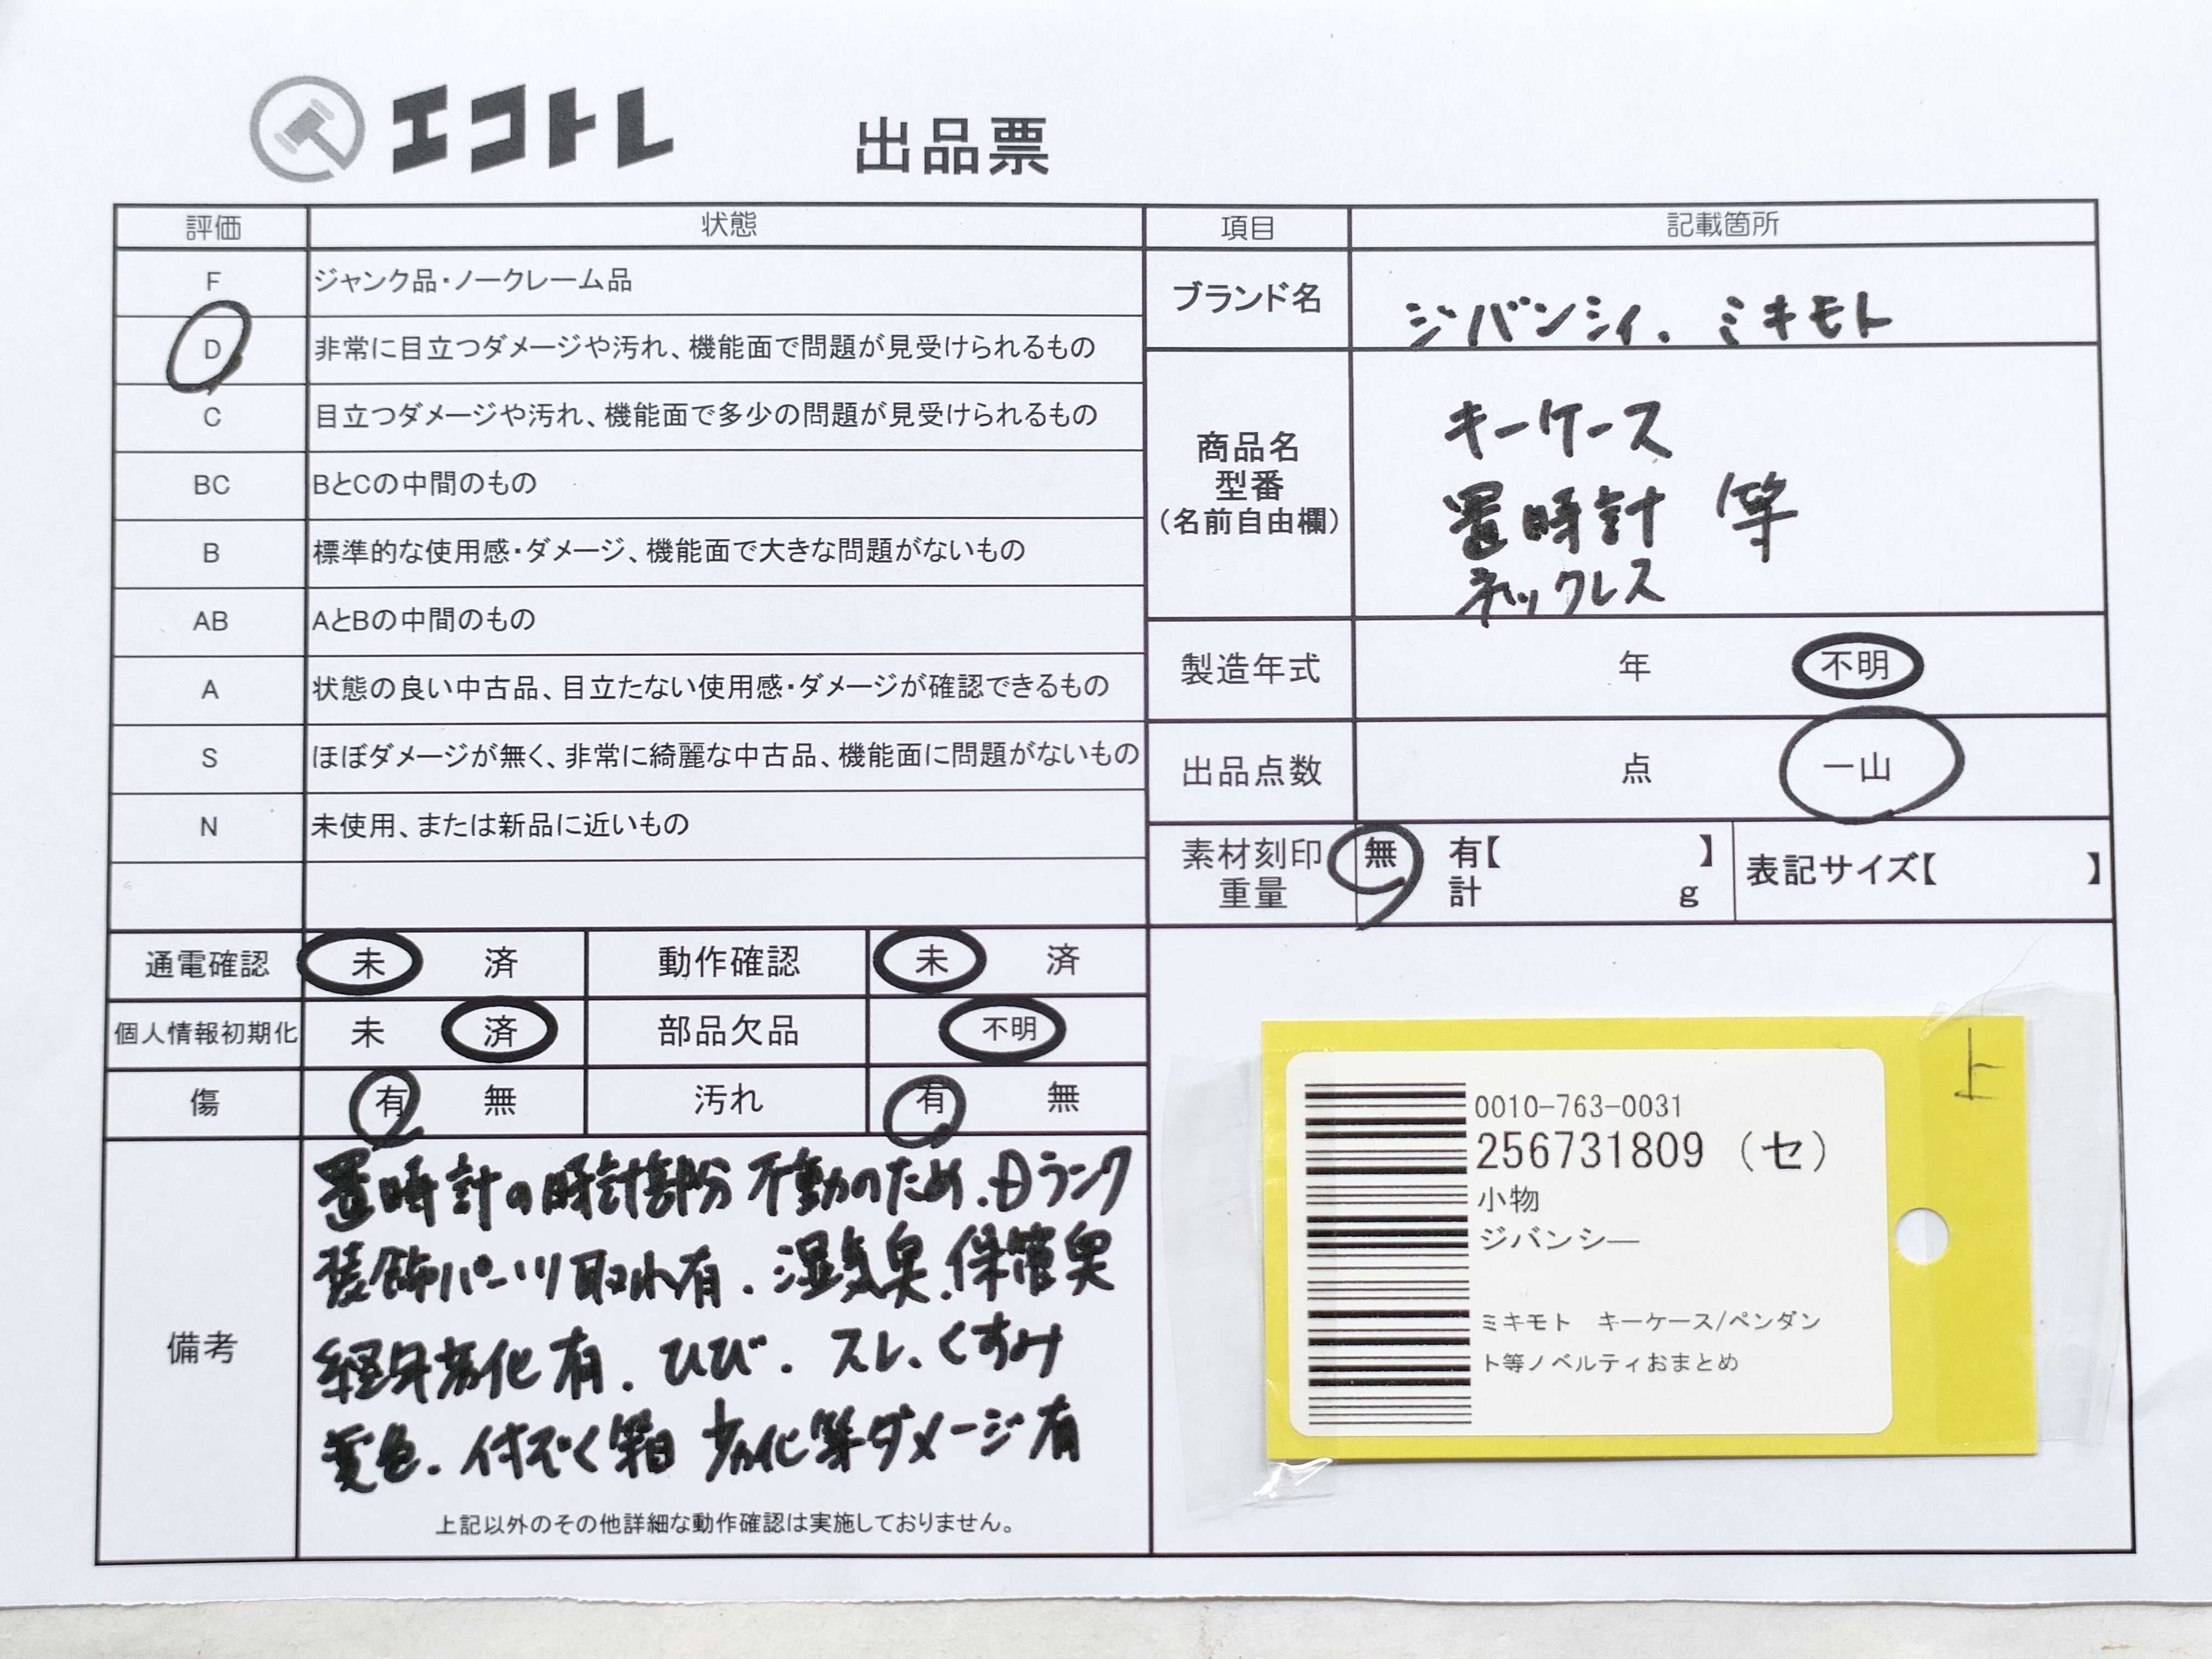 エコトレ 出品票
評価 状態
F ジャンク品・ノークレーム品
D 非常に目立つダメージや汚れ、機能面で問題が見受けられるもの
C 目立つダメージや汚れ、機能面で多少の問題が見受けられるもの
BC BとCの中間のもの
B 標準的な使用感・ダメージ、機能面で大きな問題がないもの
AB AとBの中間のもの
A 状態の良い中古品、目立たない使用感・ダメージが確認できるもの
S ほぼダメージが無く、非常に綺麗な中古品、機能面に問題がないもの
N 未使用、または新品に近いもの
項目 記載箇所
ブランド名 ジバンシィ、ミキモト
商品名
型番
(名前自由欄)
キーケース
置時計 等
ネックレス
製造年式 年 不明
出品点数 点 一山
素材刻印 無 有【 】 表記サイズ【 】
重量 計 g
通電確認 未 済 動作確認 未 済
個人情報初期化 未 済 部品欠品 不明
傷 有 無 汚れ 有 無
備考
置時計の時計部分不動のため、Dランク
装飾パーツ取れ有、湿気臭、保管臭
経年劣化有、ひび、スレ、くすみ
変色、付ぞく箱劣化等ダメージ有
上記以外のその他詳細な動作確認は実施しておりません。
ト
0010-763-0031
256731809 (セ)
小物
ジバンシー
ミキモト キーケース/ペンダン
ト等ノベルティおまとめ